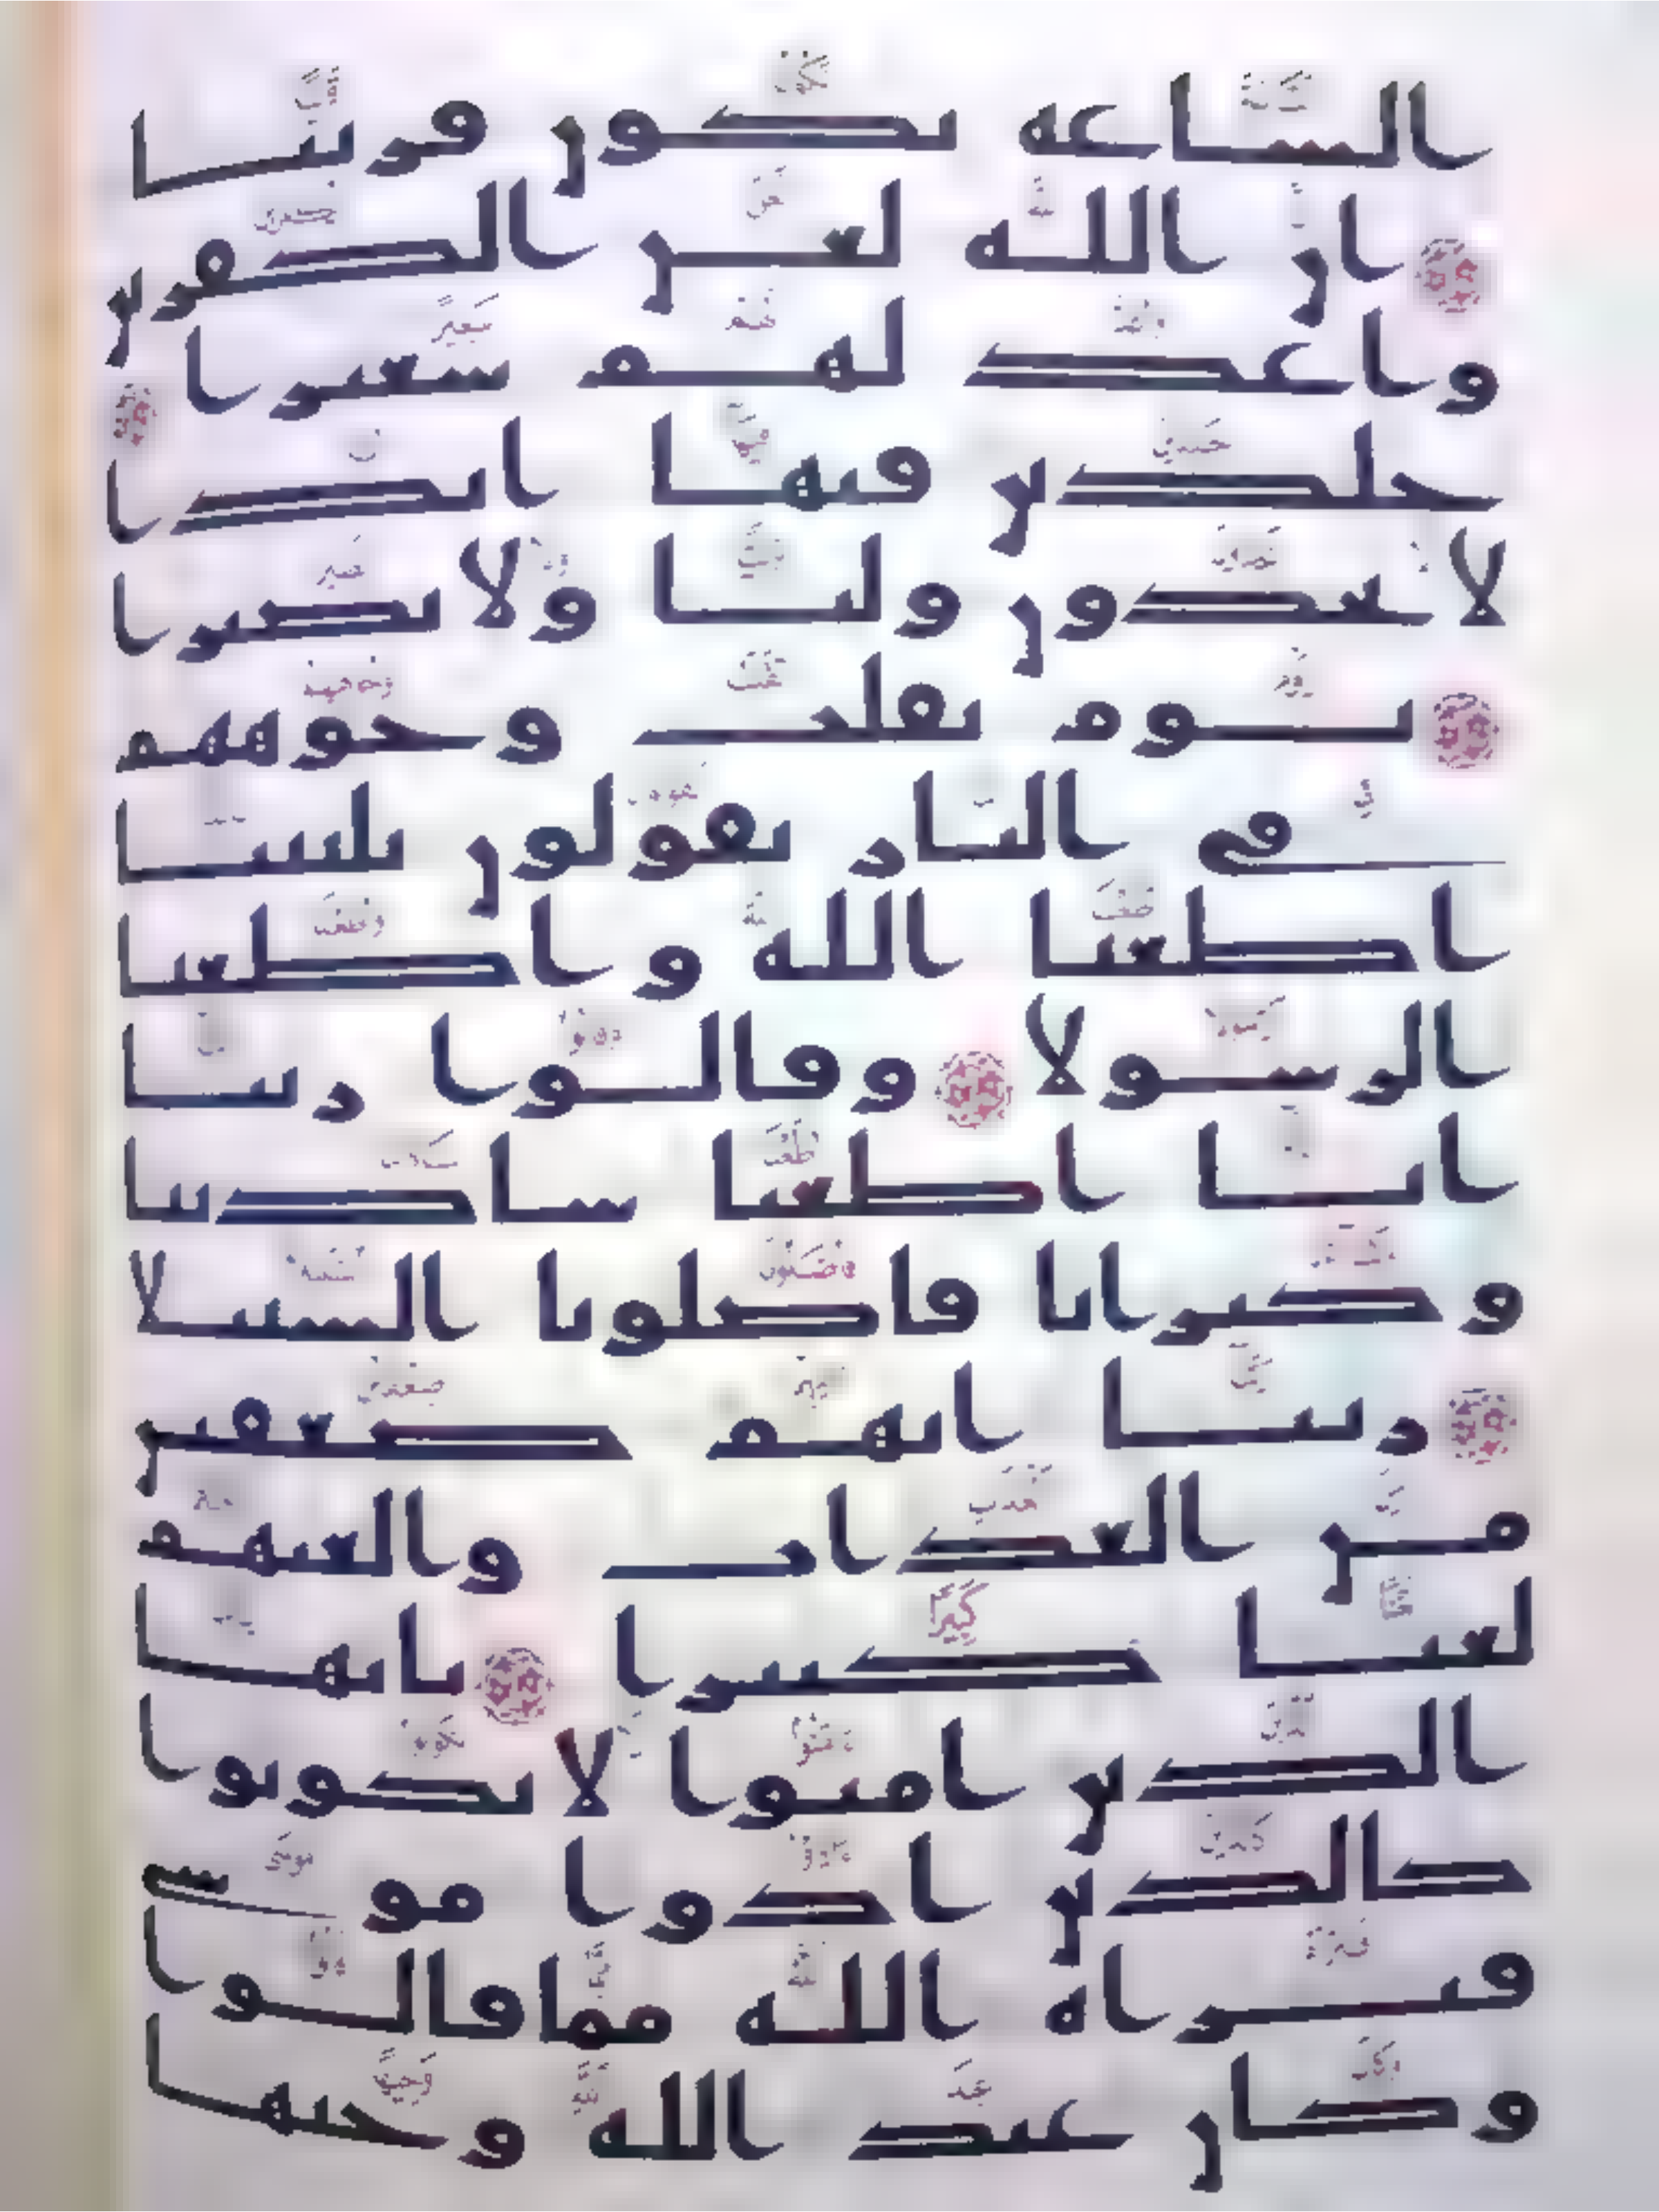 الساعة تكون قريبا
ان الله لعن الكفرين
واعد لهم سعيرا
خلدين فيها ابدا
لا يجدون وليا ولا نصيرا
يوم تقلب وجوههم
في النار يقولون يليتنا
اطعنا الله واطعنا
الرسولا وقالوا ربنا
انا اطعنا سادتنا
وكبرانا فاضلونا السبيلا
ربنا اتهم ضعفين
من العذاب والعنهم
لعنا كبيرا يايها
الذين امنوا لا تكونوا
كالذين اذوا موسى
فبراه الله مما قالوا
وكان عند الله وجيها